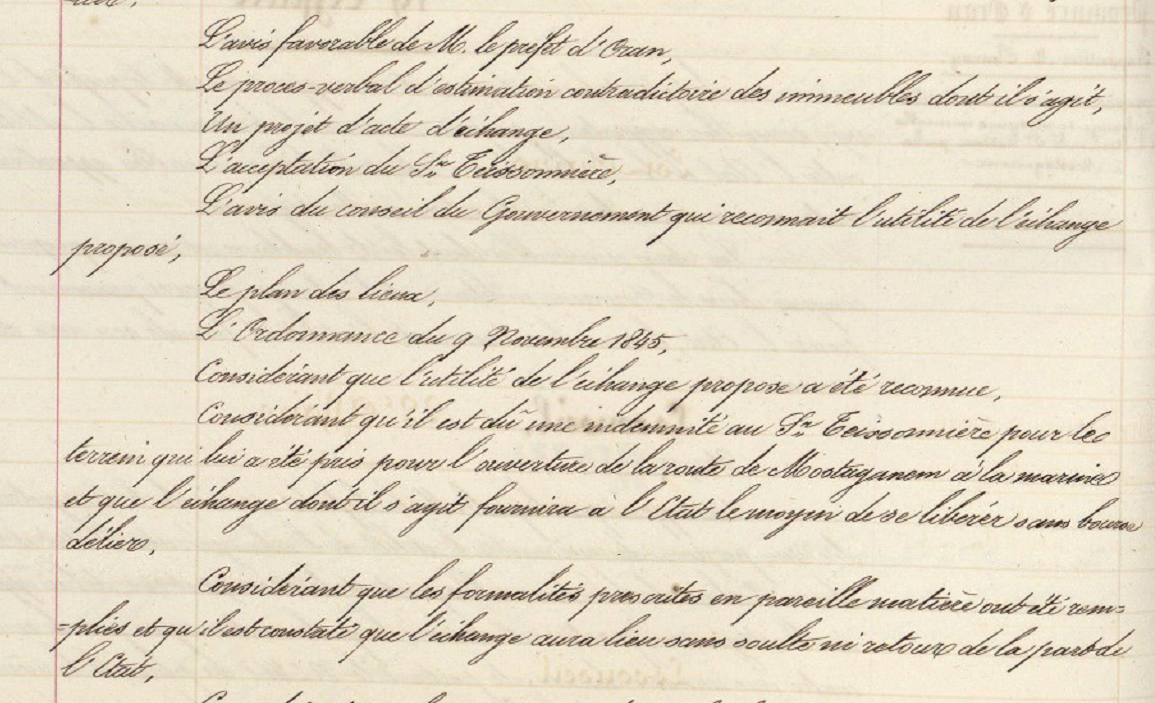 L'avis favorable de M. le préfet d'Oran,
Le procès-verbal d'estimation contradictoire des immeubles dont il s'agit,
Un projet d'acte d'échange,
L'acceptation du Sr. Teissonnière,
L'avis du conseil du Gouvernement qui reconnait l'utilité de l'échange
proposé,
Le plan des lieux,
L'Ordonnance du 9 Novembre 1845,
Considérant que l'utilité de l'échange proposé a été reconnue,
Considérant qu'il est dû une indemnité au Sr. Teissonnière pour le
terrein qui lui a été pris pour l'ouverture de la route de Mostaganem à la marine
et que l'échange dont il s'agit fournira à l'Etat le moyen de se libérer sans bourse
délier,
Considérant que les formalités prescrites en pareille matière ont été rem=
=plies et qu'il est constaté que l'échange aura lieu sans soulte ni retour de la part de
l'Etat,